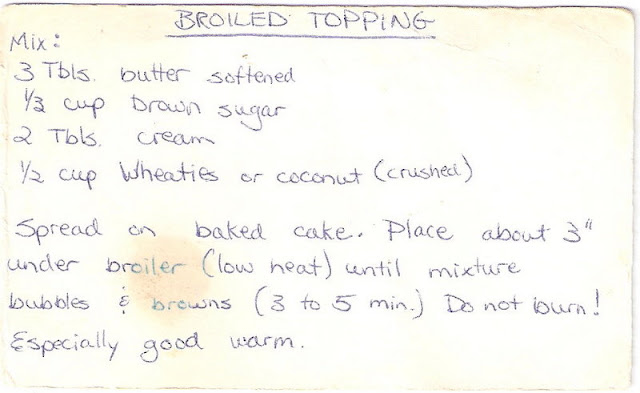 BROILED TOPPING
Mix:
3 Tbls. butter softened
1/3 cup brown sugar
2 Tbls. cream
1/2 cup Wheaties or coconut (crushed)
Spread on baked cake. Place about 3"
under broiler (low heat) until mixture
bubbles & browns (3 to 5 min.) Do not burn!
Especially good warm.